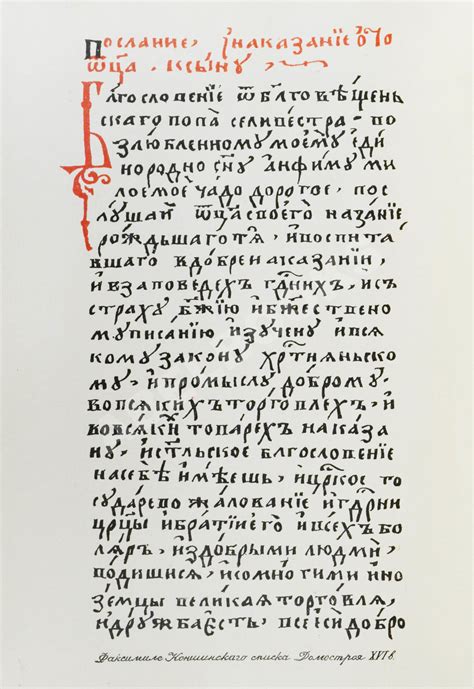 Послание, ꙇнаказанїе ѿто
ѿца. ксыну,
Бл҃гословенїе ѿ бл҃говѣщень
скаго попа селивестра. во
злюбленному моемꙋ еди
нородно сн҃у анфиму ми
лое мое чадо дорогое, пос
лушаи ѿца своего наказанїе
рождьшаго тѧ, ивоспита
вшаго вдобре наказанїи
ивзаповедехъ гд҃нихъ, исъ
страху бж҃їю ибж҃ествено
мꙋ писанию изучену ивсѧ
кому закону хрт҃иѧньско
му, ипромыслꙋ доброму.
вовсѧкихъ торговлехъ, и
вовсѧки товарехъ наказа
ну, ист҃льское бл҃гословенїе
насебѣ имѣешь, ицр҃кое го
сударево жалованїе игд҃рни
цр҃цы ибратїи его ивсехъ бо
лѧръ, издобрыми людми,
водишисѧ, исомногими ино
земцы великаѧ торговлѧ,
идружба есть, все еси добро
Факсимиле Коншинскаго списка Домостроя XVI в.